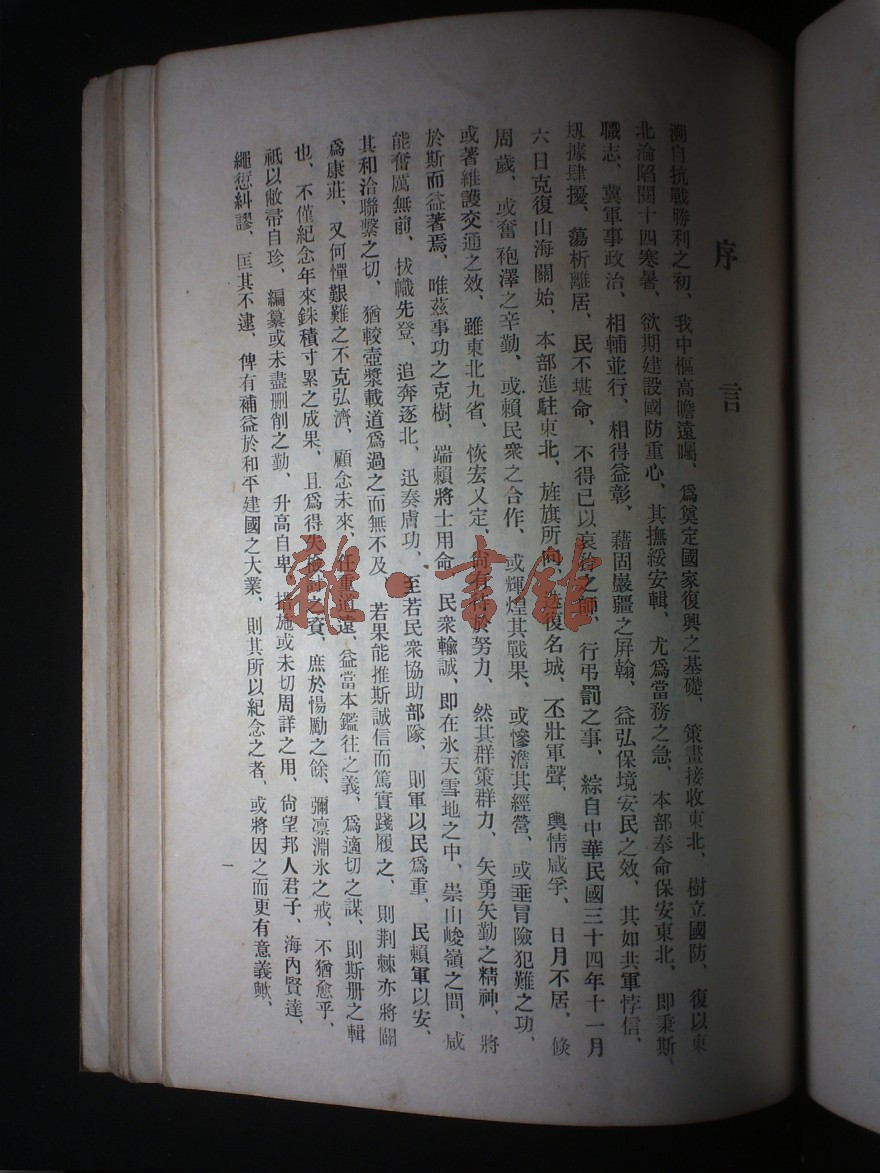 序言
溯自抗戰勝利之初、我中樞高瞻遠矚、爲奠定國家復興之基礎、策畫接收東北、樹立國防、復以東
北淪陷閱十四寒暑、欲期建設國防重心、其撫綏安輯、尤爲當務之急、本部奉命保安東北、卽秉斯
職志、冀軍事政治、相輔並行、相得益彰、藉固巖疆之屏翰、益弘保境安民之效、其如共軍悖信、
圾據肆擾、蕩析離居、民不堪命、不得已以哀 之師、行弔罰之事、綜自中華民國三十四年十一月
六日克復山海關始、本部進駐東北、旌旗所向、 復名城、丕壯軍聲、輿情咸孚、日月不居、倐
周歲、或奮袍澤之辛勤、或賴民衆之合作、或輝煌其戰果、或慘澹其經營、或垂冒險犯難之功、
或著維護交通之效、雖東北九省、恢宏乂定、尙有待於努力、然其群策群力、矢勇矢勤之精神、將
於斯而益著焉、唯茲事功之克樹、端賴將士用命、民衆輸誠、卽在氷天雪地之中、崇山峻嶺之間、咸
能奮厲無前、拔幟先登、追奔逐北、迅奏膚功、至若民衆協助部隊、則軍以民爲重、民賴軍以安、
其和洽聯繫之切、猶較壺漿載道爲過之而無不及、若果能推斯誠信而篤實踐履之、則荆棘亦將闢
爲康莊、又何憚艱難之不克弘濟、顧念未來、任重道遠、益當本鑑往之義、爲適切之謀、則斯册之輯
也、不僅紀念年來銖積寸累之成果、且爲得失檢討之資、庶於惕勵之餘、彌凛淵氷之戒、不猶愈乎、
祇以敝帚自珍、編纂或未盡刪削之勤、升高自卑、措施或未切周詳之用、尙望邦人君子、海內賢達、
繩愆糾謬、匡其不逮、俾有補益於和平建國之大業、則其所以紀念之者、或將因之而更有意義歟、
一
雜·書館